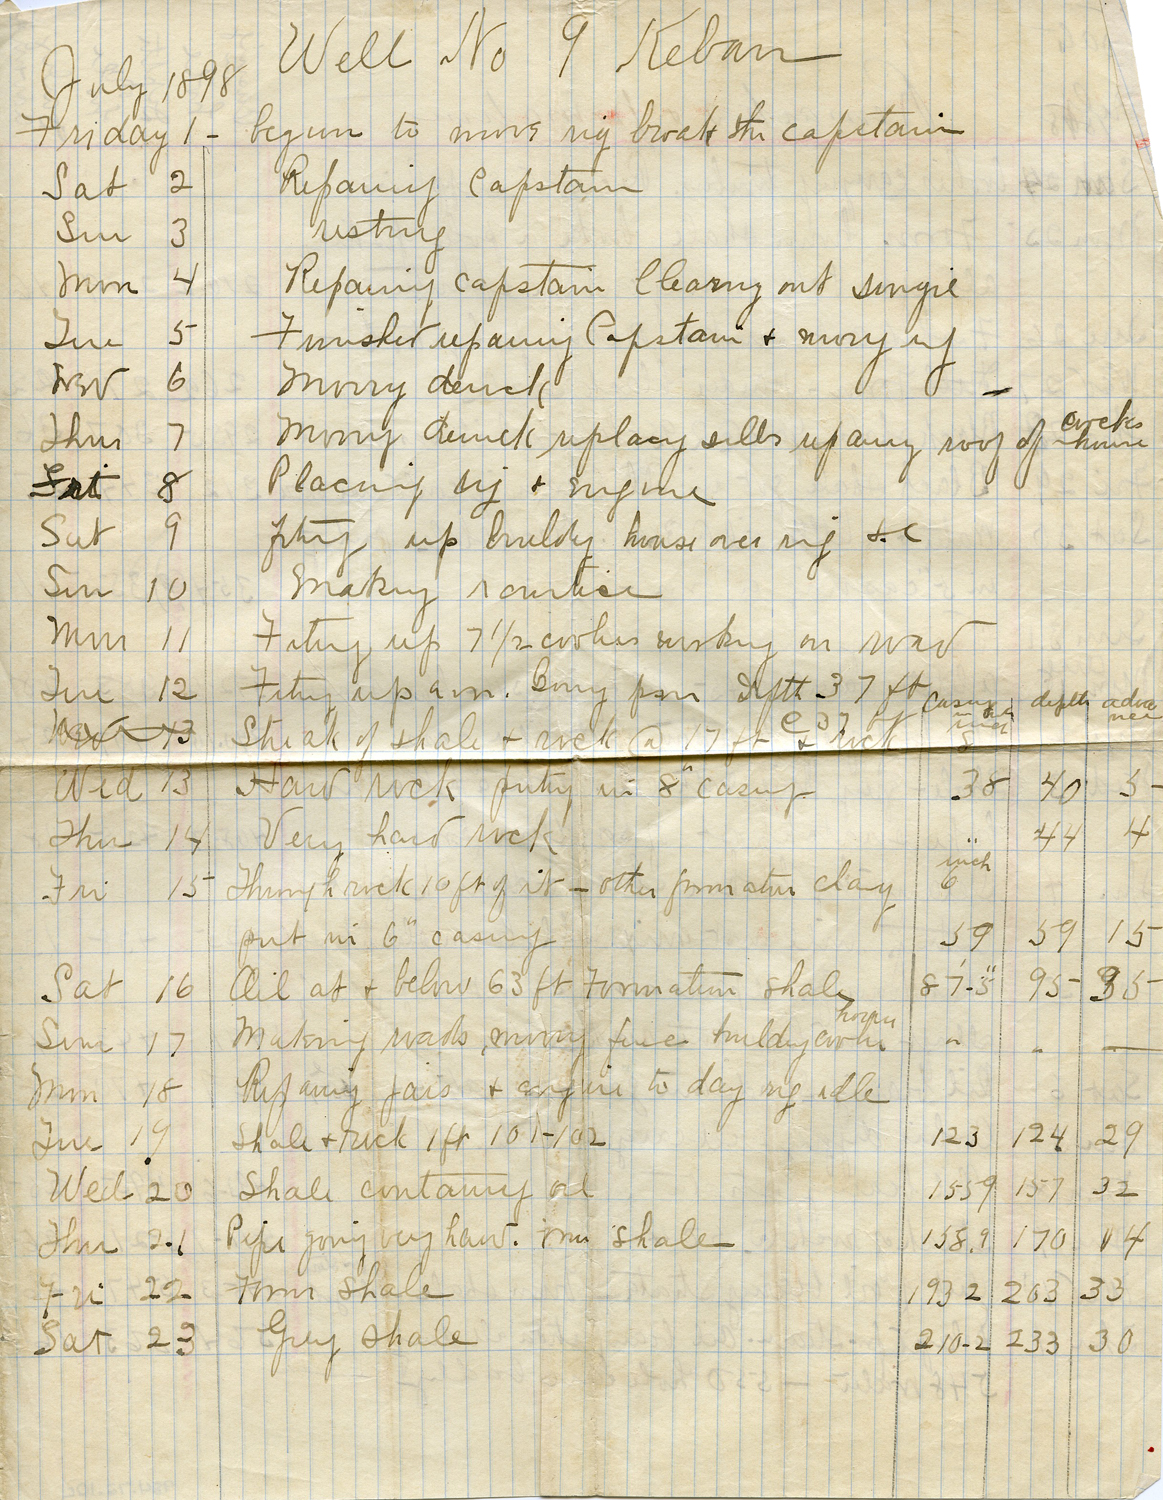 Well No 9 Keban
July 1898
Friday 1 - begun to move rig broak the capstain
Sat 2 Repairing Capstain
Sun 3 resting
Mon 4 Repairing capstain Clearing out
Tue 5 Finished repairing Capstain + moving rig
Wed 6 Moving derrick
Thur 7 Moving derrick replacing sills repairing roof of cookes house
Fri 8 Placing rig + engine
Sat 9 fiting up building house over rig &c
Sun 10 Making
Mon 11 Fiting up 7 1/2 working on road
Tue 12 Fiting up Boring from Depth 37 ft
casing depth advance
13 Streak of shale + rock @ 17 ft & rock @ 37 ft 8
Wed 13 Hard rock puting in 8" casing 38 40 5
Thur 14 Very hard rock " 44 4
inch
Fri 15 Through rock 10 ft of it - other formation clay 6
put in 6" casing 59 59 15
Sat 16 Oil at + below 63 ft Formation shale 87'-5" 95 35
Sun 17 Making roads, moving building cooke house " " —
Mon 18 Repairing jars + engine to day rig idle
Tue 19 Shale + rock 1 ft 101-102 123 124 29
Wed 20 Shale containing oil 1559 157 32
Thur 21 Pipe going very hard. Form shale 158.9 170 14
Fri 22 Form Shale 193 2 203 33
Sat 23 Grey shale 210-2 233 30